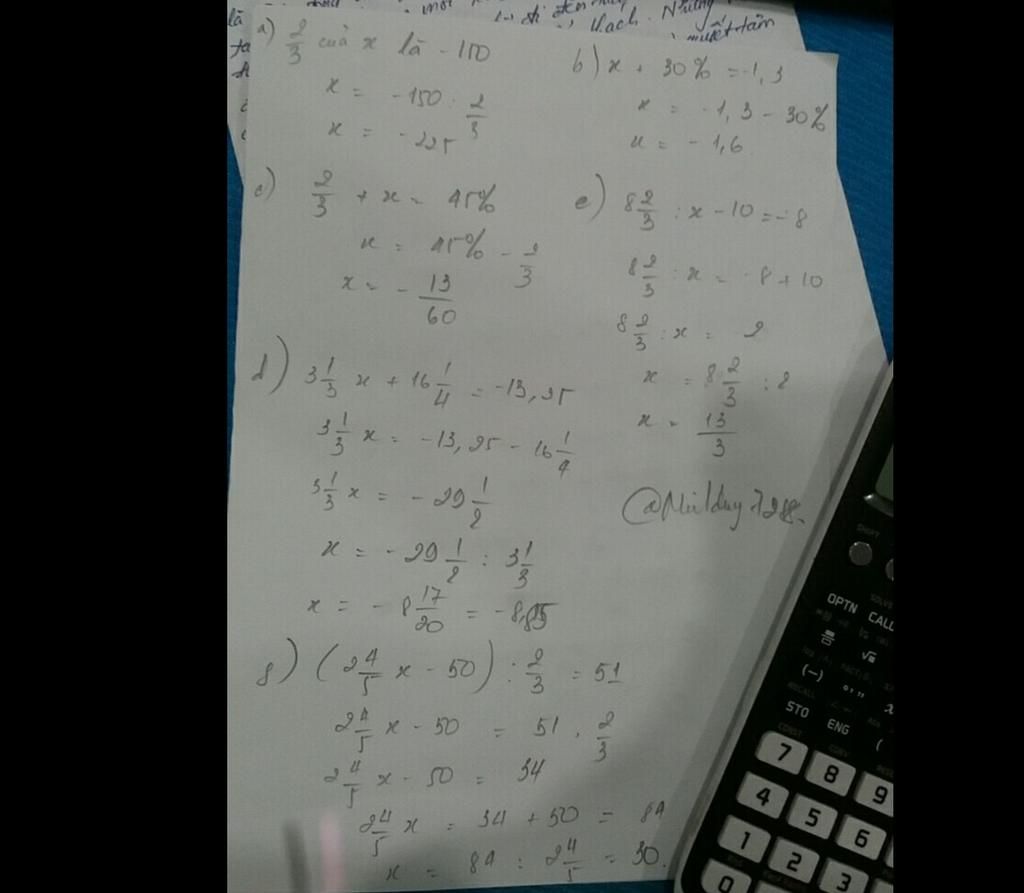 a) 2/3 của x là -150
x = -150 : 2/3
x = -225
b) x + 30% = -1,3
x = -1,3 - 30%
x = -1,6
c) 2/3 + x = 45%
x = 45% - 2/3
x = - 13/60
e) 8 2/3 : x - 10 = -8
8 2/3 : x = -8 + 10
8 2/3 : x = 2
x = 8 2/3 : 2
x = 13/3
d) 3 1/3 x + 16 1/4 = -13,25
3 1/3 x = -13,25 - 16 1/4
3 1/3 x = - 29 1/2
x = - 29 1/2 : 3 1/3
x = - 8 17/20 = -8,85
g) (2 4/5 x - 50) : 2/3 = 51
2 4/5 x - 50 = 51 . 2/3
2 4/5 x - 50 = 34
2 4/5 x = 34 + 50 = 84
x = 84 : 2 4/5 = 30.
SHIFT
OPTN CALC
(-)
STO ENG (
7 8 9
4 5 6
1 2 3
0